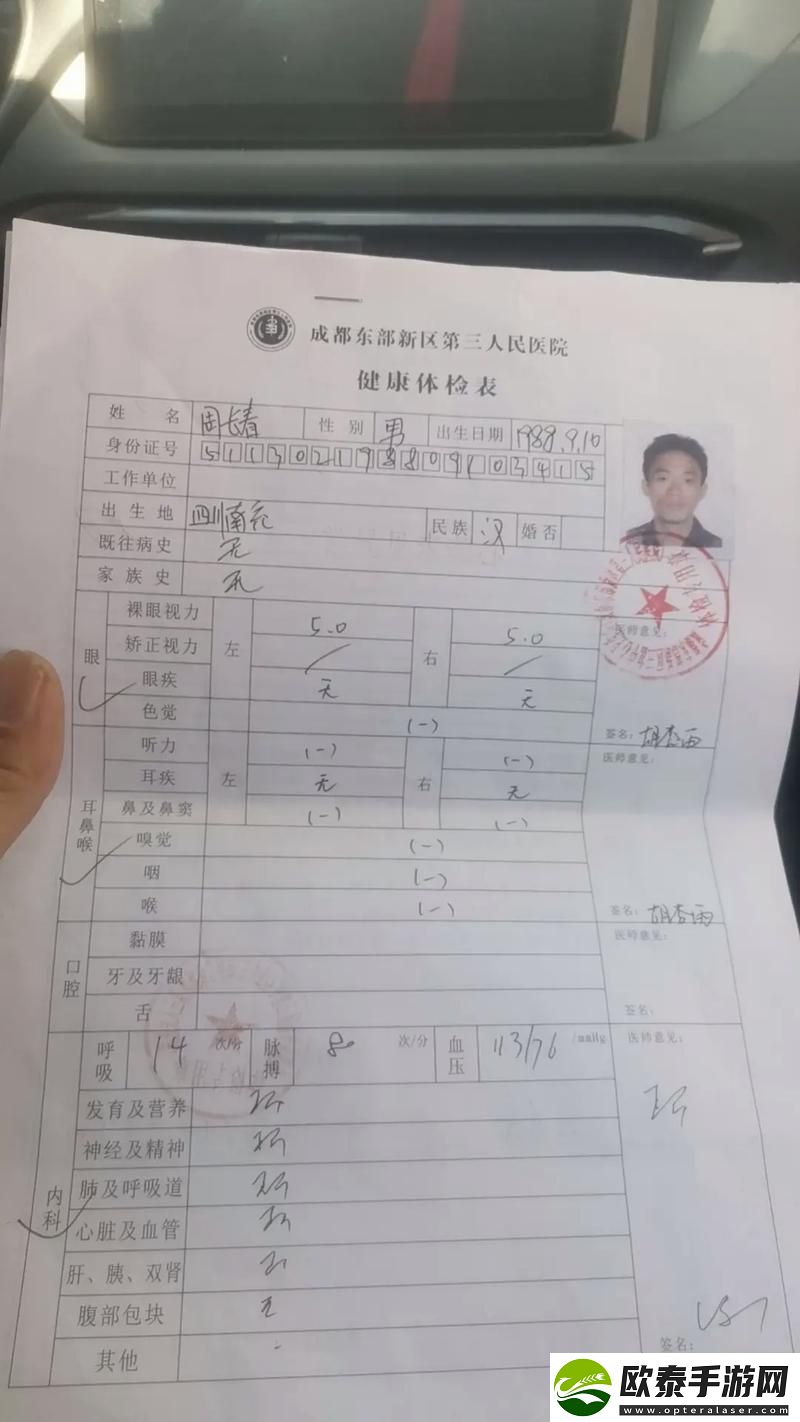 成都东部新区第三人民医院
健康体检表
姓名 周长春 性别 男 出生日期 1988.9.10
身份证号 511302198809103415
工作单位
出生地 四川南充 民族 汉 婚否
既往病史 无
家族史 无
眼 裸眼视力 左 5.0 右 5.0 医师意见:
矫正视力 / /
眼疾 无 无
色觉 (-) 签名: 胡杏雨
耳鼻喉 听力 左 (-) 右 (-) 医师意见:
耳疾 无 无
鼻及鼻窦 (-) (-)
嗅觉 (-)
咽 (-)
喉 (-) 签名: 胡杏雨
口腔 黏膜 医师意见:
牙及牙龈
舌 签名:
内科 呼吸 14 次/分 脉搏 80 次/分 血压 113/76 /mmHg 医师意见:
发育及营养
神经及精神
肺及呼吸道
心脏及血管
肝、胰、双肾
腹部包块 无
其他 - 签名:
欧泰手游网
www.opteralaser.com